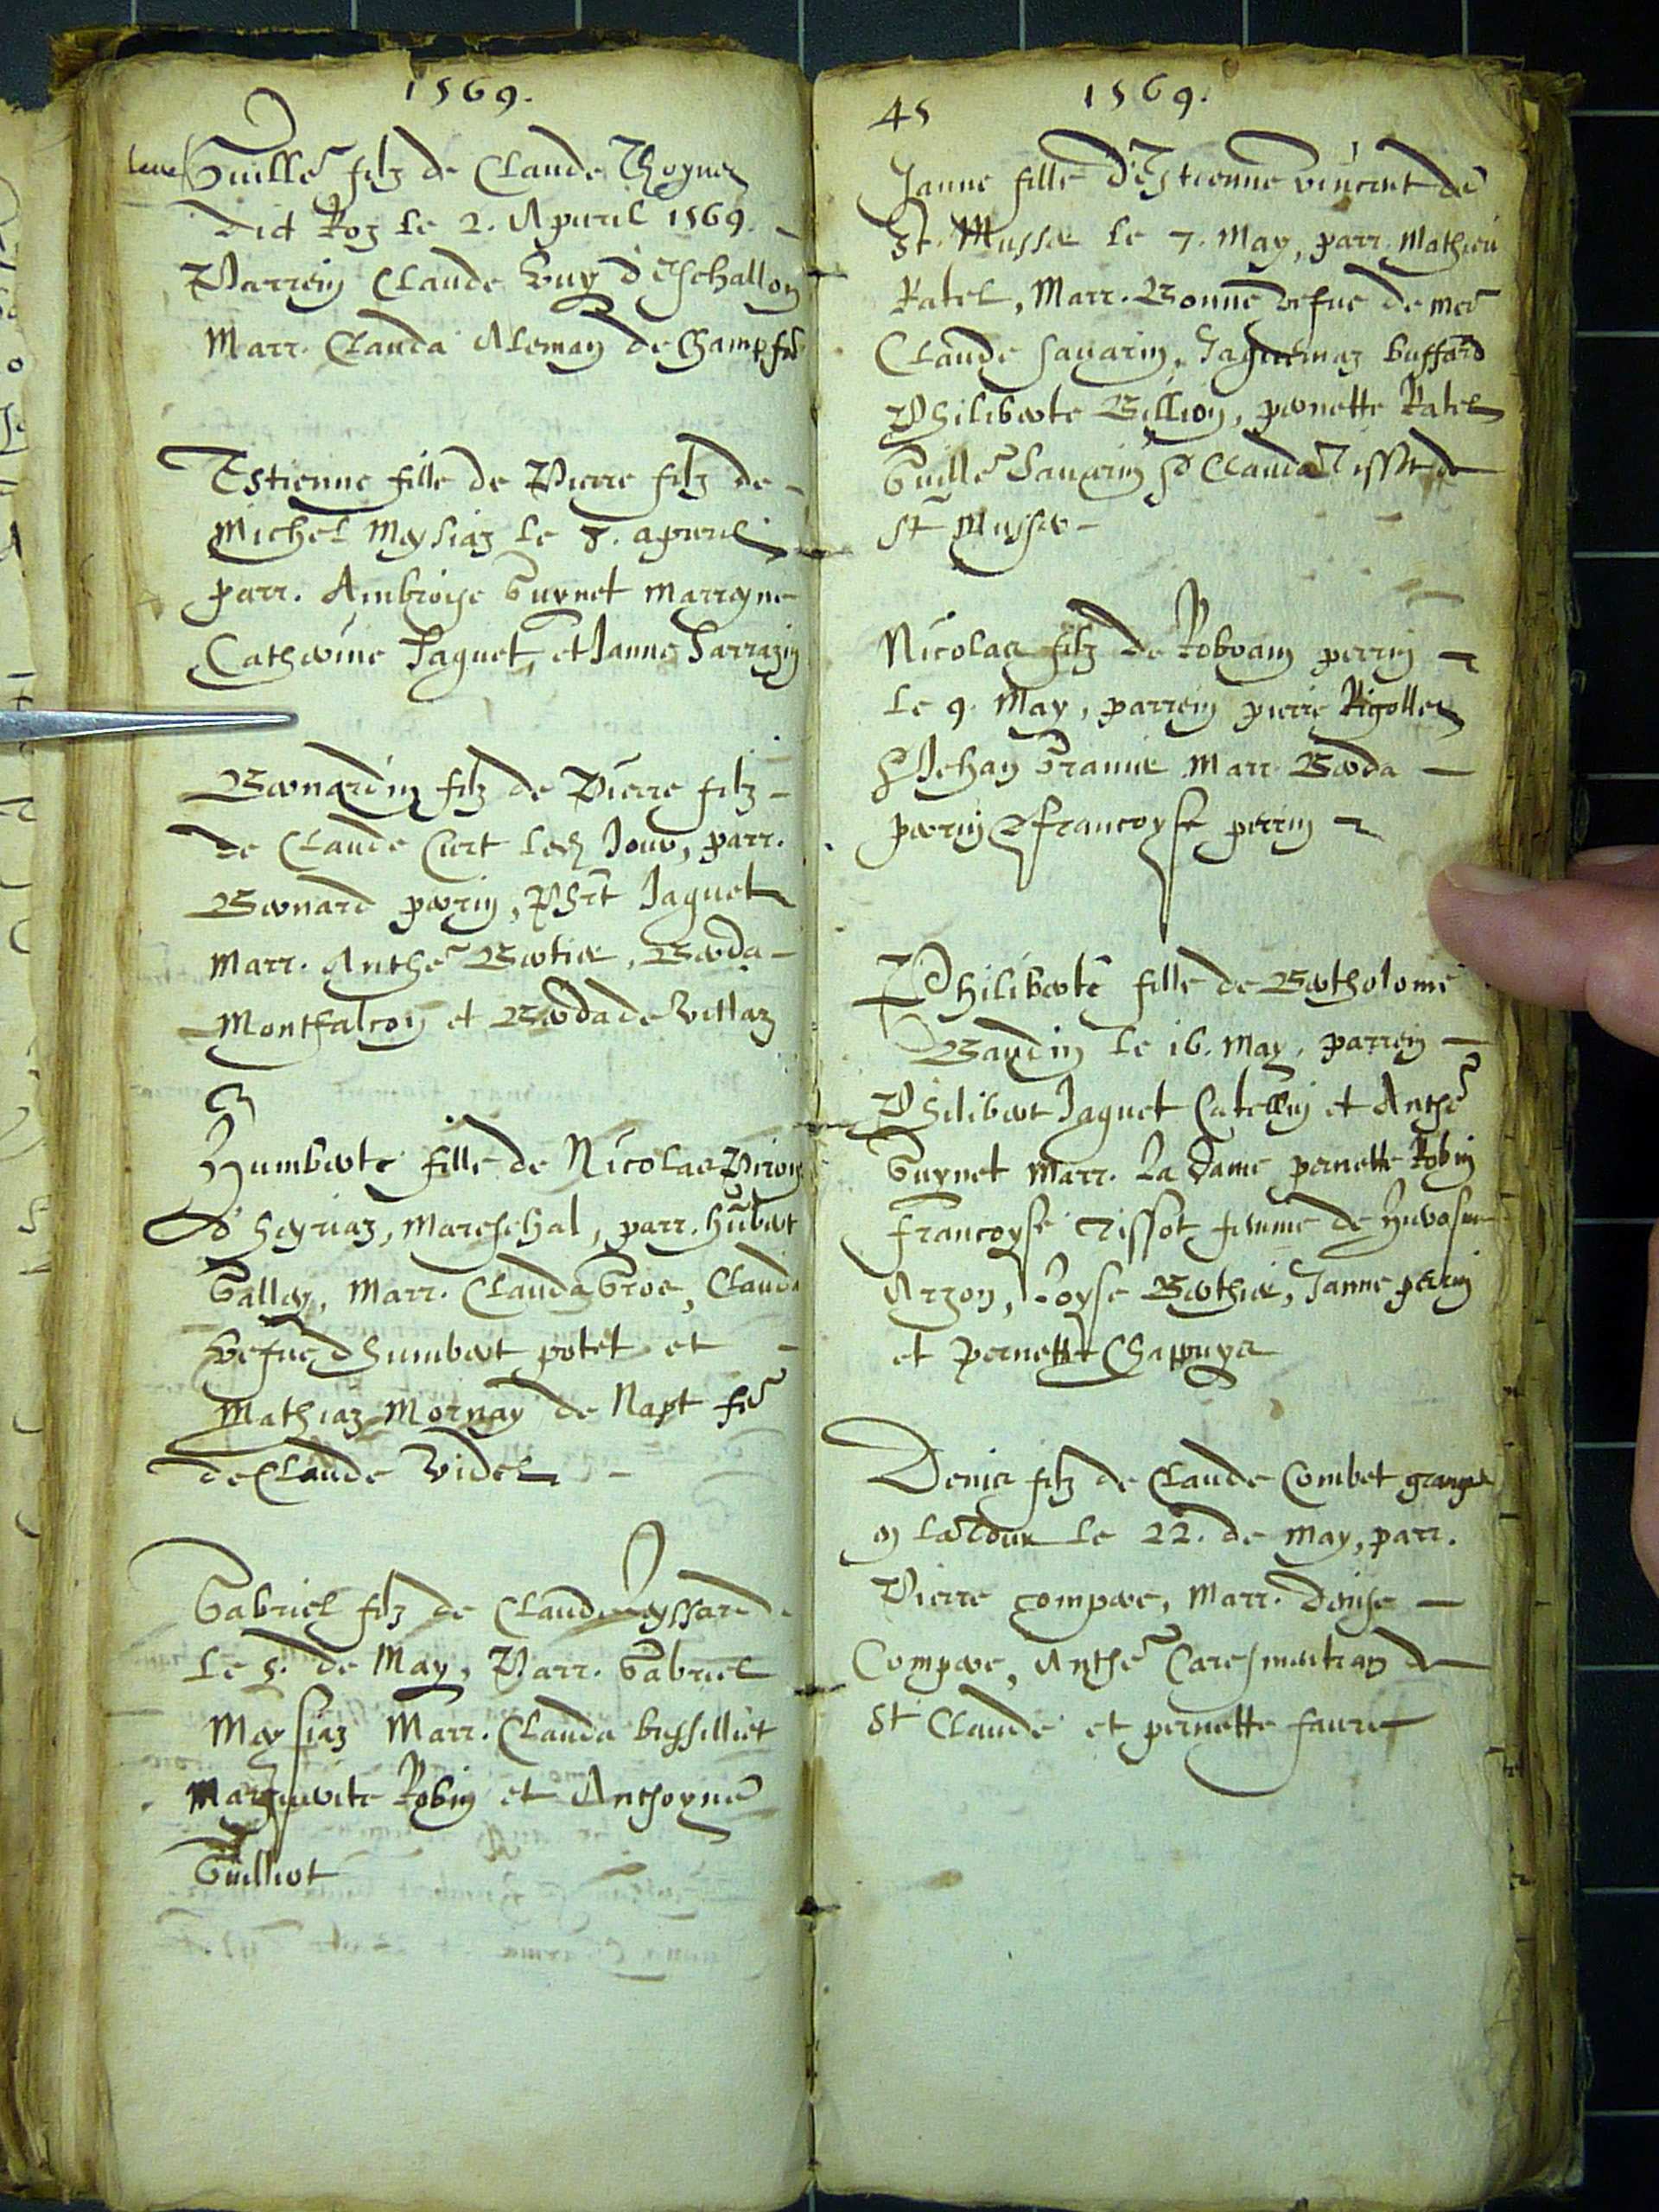 1569.
Guille filz de Claude Thoynez
dict Roz le 2. Apuril 1569.
Parrein Claude Guy d'Eschallon
Marr. Clauda Aleman de Champfr
Estienne fille de Pierre filz de
Michel Meysiaz le 8. apuril
parr. Ambroise Guynet Marreyne
Catherine Jaquet, et Janne Sarrazin
Bernardin filz de Pierre filz
de Claude Curt led Jour, parr.
Bernard perrin, Phrt Jaquet
Marr. Anthe Bertier, Berda
Montfalcon et Berda de Villaz
Humberte fille de Nicolas Piron
d'heyriaz, Mareschal, parr. hubert
Galley, Marr. Clauda Gros, Clauda
vefue dhumbert potet et
Mathiaz Mornay de Napt fe
de Claude Videl
Gabriel filz de Claude Meyssard
le 5. de May, Parr. Gabriel
Meysiaz Marr. Clauda bussilliet
Marguerite Robin et Anthoyne
Guilliot
45
1569.
Janne fille d'Estienne vincent de
St. Mussie le 7. May, parr. Mathieu
Ratel, Marr. Bonne vefue de me
Claude sauarin, Jaquemaz buffard
Philiberte Billion, pernette Ratel
Guille Sauarin Clauda Tissot de
St Mussie
Nicolas filz de Roboam perrin
le 9. May, parrein pierre Rigollez
Jehan Granier Marr. Berda
perrin francoyse perrin
Philiberte fille de Bertholome
Baudin le 16. May, parrein
Philibert Jaquet Catellin et Anthe
Guynet Marr. La Dame pernette Robin
francoyse Tissot femme de
Arzon, Loyse Berthier, Janne perrin
et Pernette Chappuys
Denis filz de Claude Combet granger
en la Tour le 22. de May, parr.
Pierre compere, Marr. Denise
Compere, Anthe Caresmentran de
St Claude et pernette faure